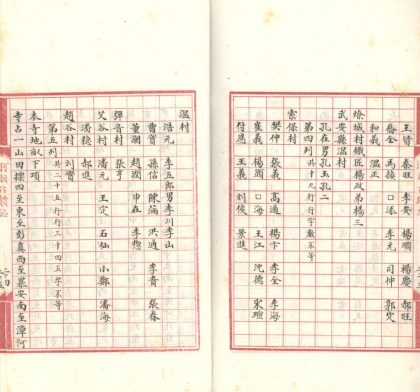 王賢 秦旺 李英 楊順 楊慶 郝旺
喬全 馬接 口添 李元 司仲 郭定
和義 溫正
爐城村鐵匠楊政弟楊三
武安縣溫村
孔在男孔玉孔二
第四列共十九行行字數不等
索保村
樊仲 張義 高通 楊方 李全 李海
崔義 楊顯 口海 王江 沈德 宋瑄
付息 王義 劉俊 景進
溫村
浩元 李五郎男李川李山
曹寶 孫信 陳蒲 洪通 李貴 張春
董湖 趙潮 申在 李惣
彈音村 張亨
艾谷村 潘元 王定 石仙 小鄭 潘海
潘稜 郝進
趙谷村 劉寶
第五列共二十五行行三十四五字不等
本寺地畝下項
寺占一山田標四至東至彭真西至暴安南至漳河